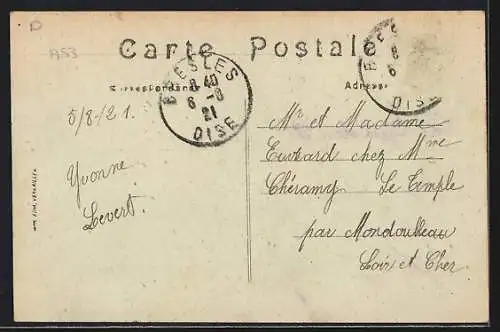 D
A53
Carte Postale
Correspondance
Adresse
BRESLES
8 40
6 -8
21
OISE
5/8/21.
Yvonne
Levert.
Mr et Madame
chez Mme
Chéramy Le Temple
par Mondoubleau
Loir et Cher